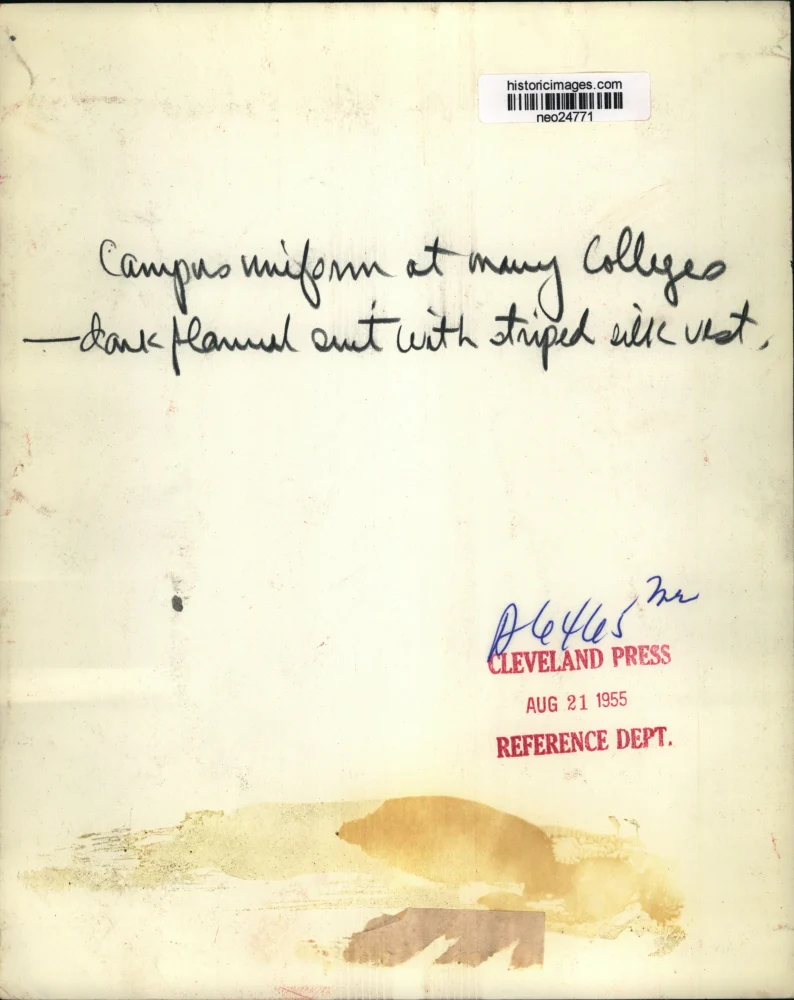 historicimages.com
neo24771
Campus uniform at many Colleges
— dark flannel suit with striped silk vest.
CLEVELAND PRESS
AUG 21 1955
REFERENCE DEPT.